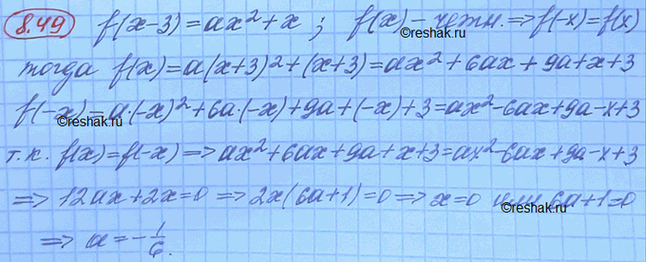 8.49 f(x-3)=ax²+x ; f(x)-четн.⇒f(-x)=f(x)
©reshak.ru
тогда f(x)=a(x+3)²+(x+3)=ax²+6ax+9a+x+3
f(-x)=a·(-x)²+6a·(-x)+9a+(-x)+3=ax²-6ax+9a-x+3
©reshak.ru
т.к. f(x)=f(-x)⇒ax²+6ax+9a+x+3=ax²-6ax+9a-x+3
⇒12ax+2x=0 ⇒2x(6a+1)=0⇒x=0 или 6a+1=0
©reshak.ru
⇒ a=-1/6.